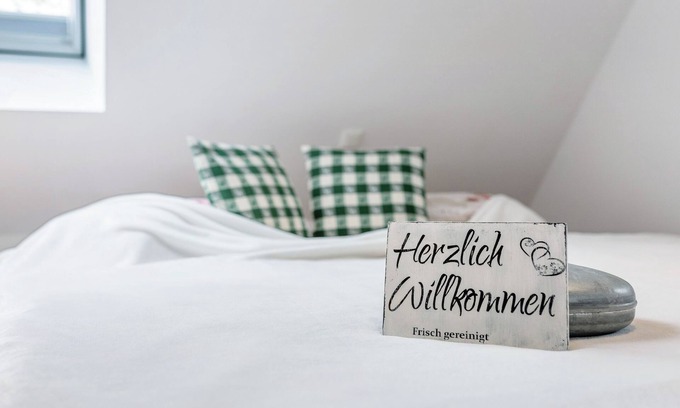 Herzlich
Willkommen
Frisch gereinigt